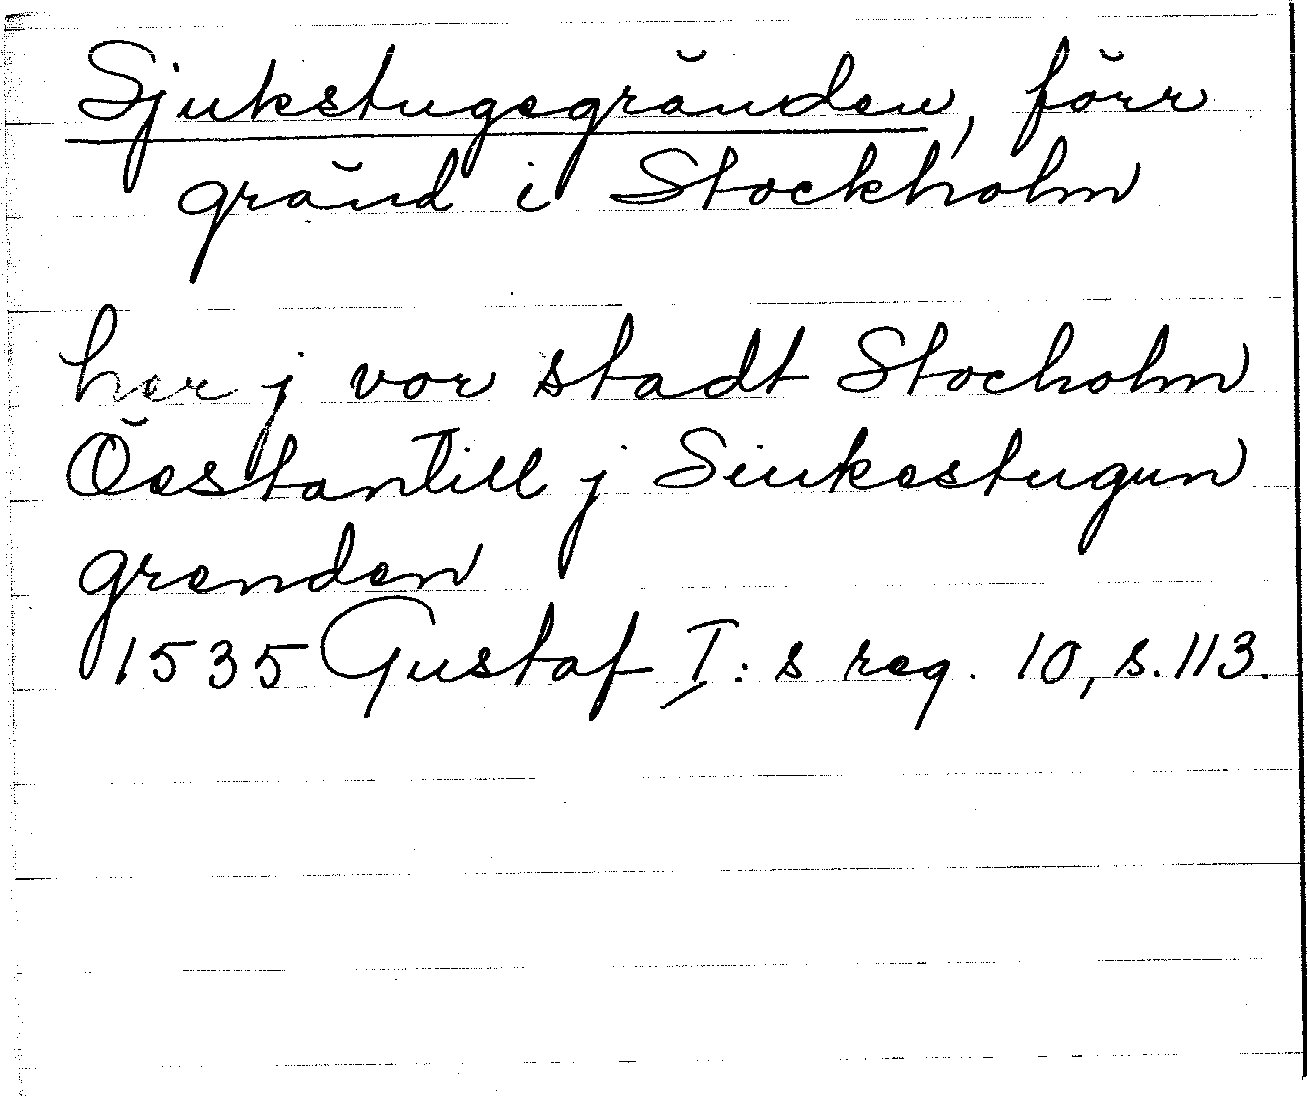 Sjukstugegränden, förr
gränd i Stockholm
her j vor stadt Stocholm
Öestantill j Siukestugun
grenden
1535 Gustaf I:s reg. 10, s. 113.